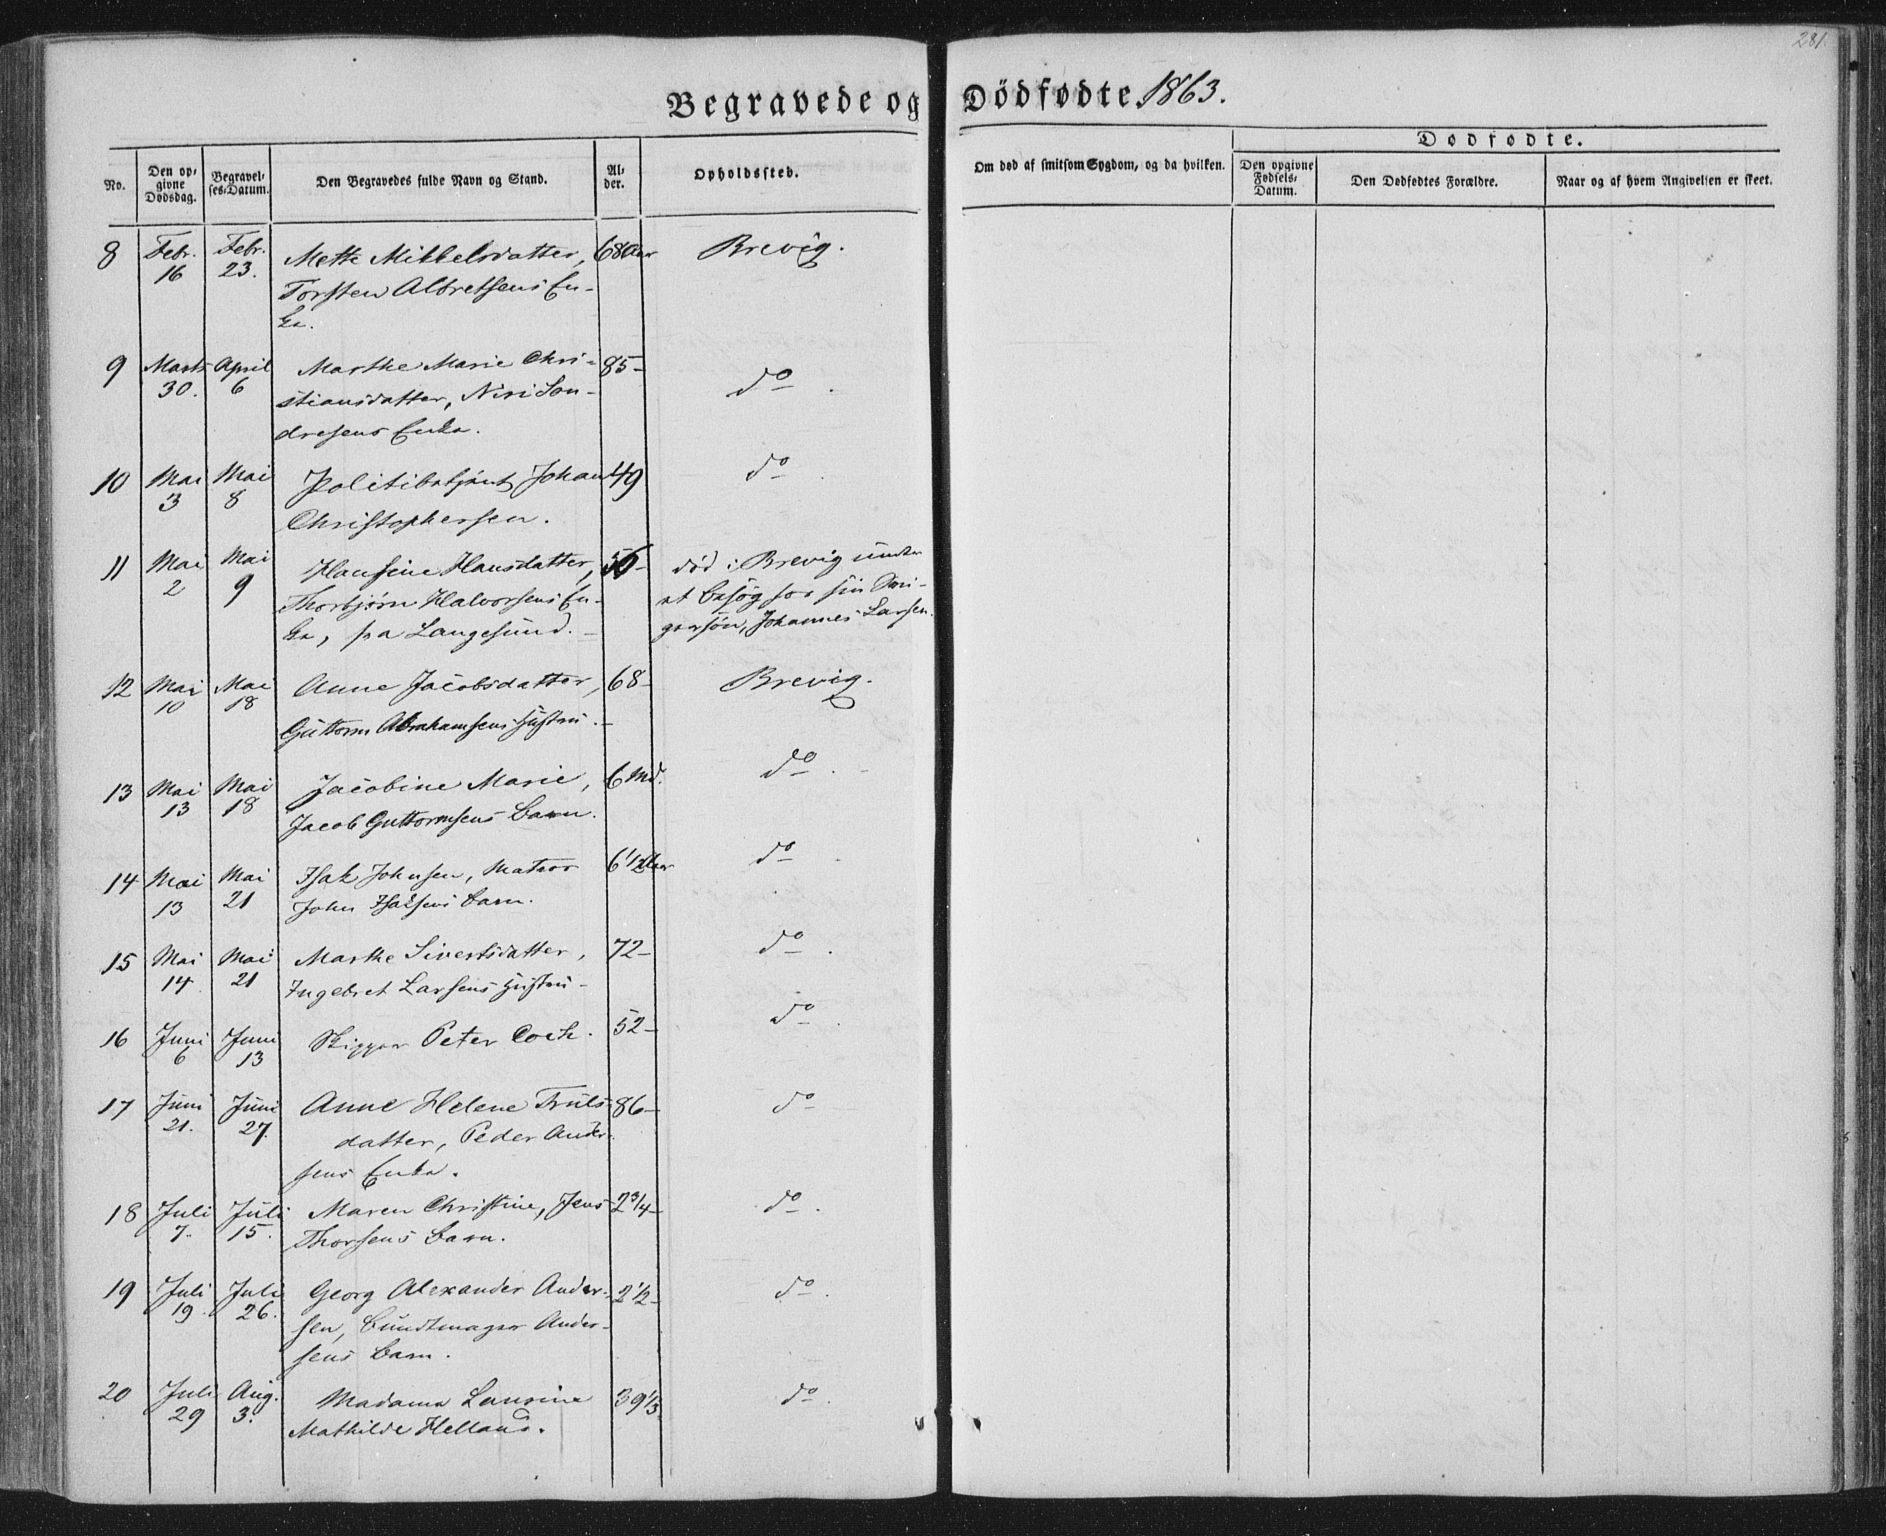 281.
Begravede og Dödfødte 1863.
No.
Den opgivne Dødsdag.
Begravelses-Datum.
Den Begravedes fulde Navn og Stand.
Alder.
Opholdssted.
Om død af smitsom Sygdom, og da hvilken.
Dødfødte.
Den opgivne Fødsels-Datum.
Den Dødfødtes Forældre.
Naar og af hvem Angivelsen er skeet.
8 Febr. 16 Febr. 23. Mette Mikkelsdatter, 68 Aar Brevig.
Torsten Albretsens En-
ke.
9 Marts 30. April 6 Marthe Marie Chri- 85- do.
stiansdatter, Niri Son-
dresens Enke.
10 Mai 3 Mai 8 Politibetjent Johan 49 do.
Christophersen.
11 Mai 2 Mai 9 Hansine Hansdatter, 56- død i Brevig under
Thorbjørn Halvorsens En- et besøg hos sin Svi-
ke, fra Langesund. gersøn, Johannes Larsen.
12 Mai 10 Mai 18 Anne Jacobsdatter, 68- Brevig.
Guttorm Abrahamsens Hustru.
13 Mai 13 Mai 18 Jacobine Marie, 6 Md. do.
Jacob Guttormsens Barn.
14 Mai 13 Mai 21 Isak Johnsen, Matros 6 1/2 Aar do
John Isaksens Barn.
15 Mai 14 Mai 21 Marthe Sivertsdatter, 72- do.
Ingebret Larsens Hustru
16 Juni 6 Juni 13 Skipper Peter Cock. 52- do.
17 Juni 21. Juni 27. Anne Helene Truls- 86- do
datter, Peder Ander-
sens Enke.
18 Juli 7. Juli 15. Maren Christine, Jens 2 3/4- do.
Thorsens Barn.
19 Juli 19. Juli 26. Georg Alexander Ander- 2 1/2- do.
sen, Bundtmager Ander-
sens Barn.
20 Juli 29 Aug. 3. Madame Laurine 39 1/3. do.
Mathilde Helland.